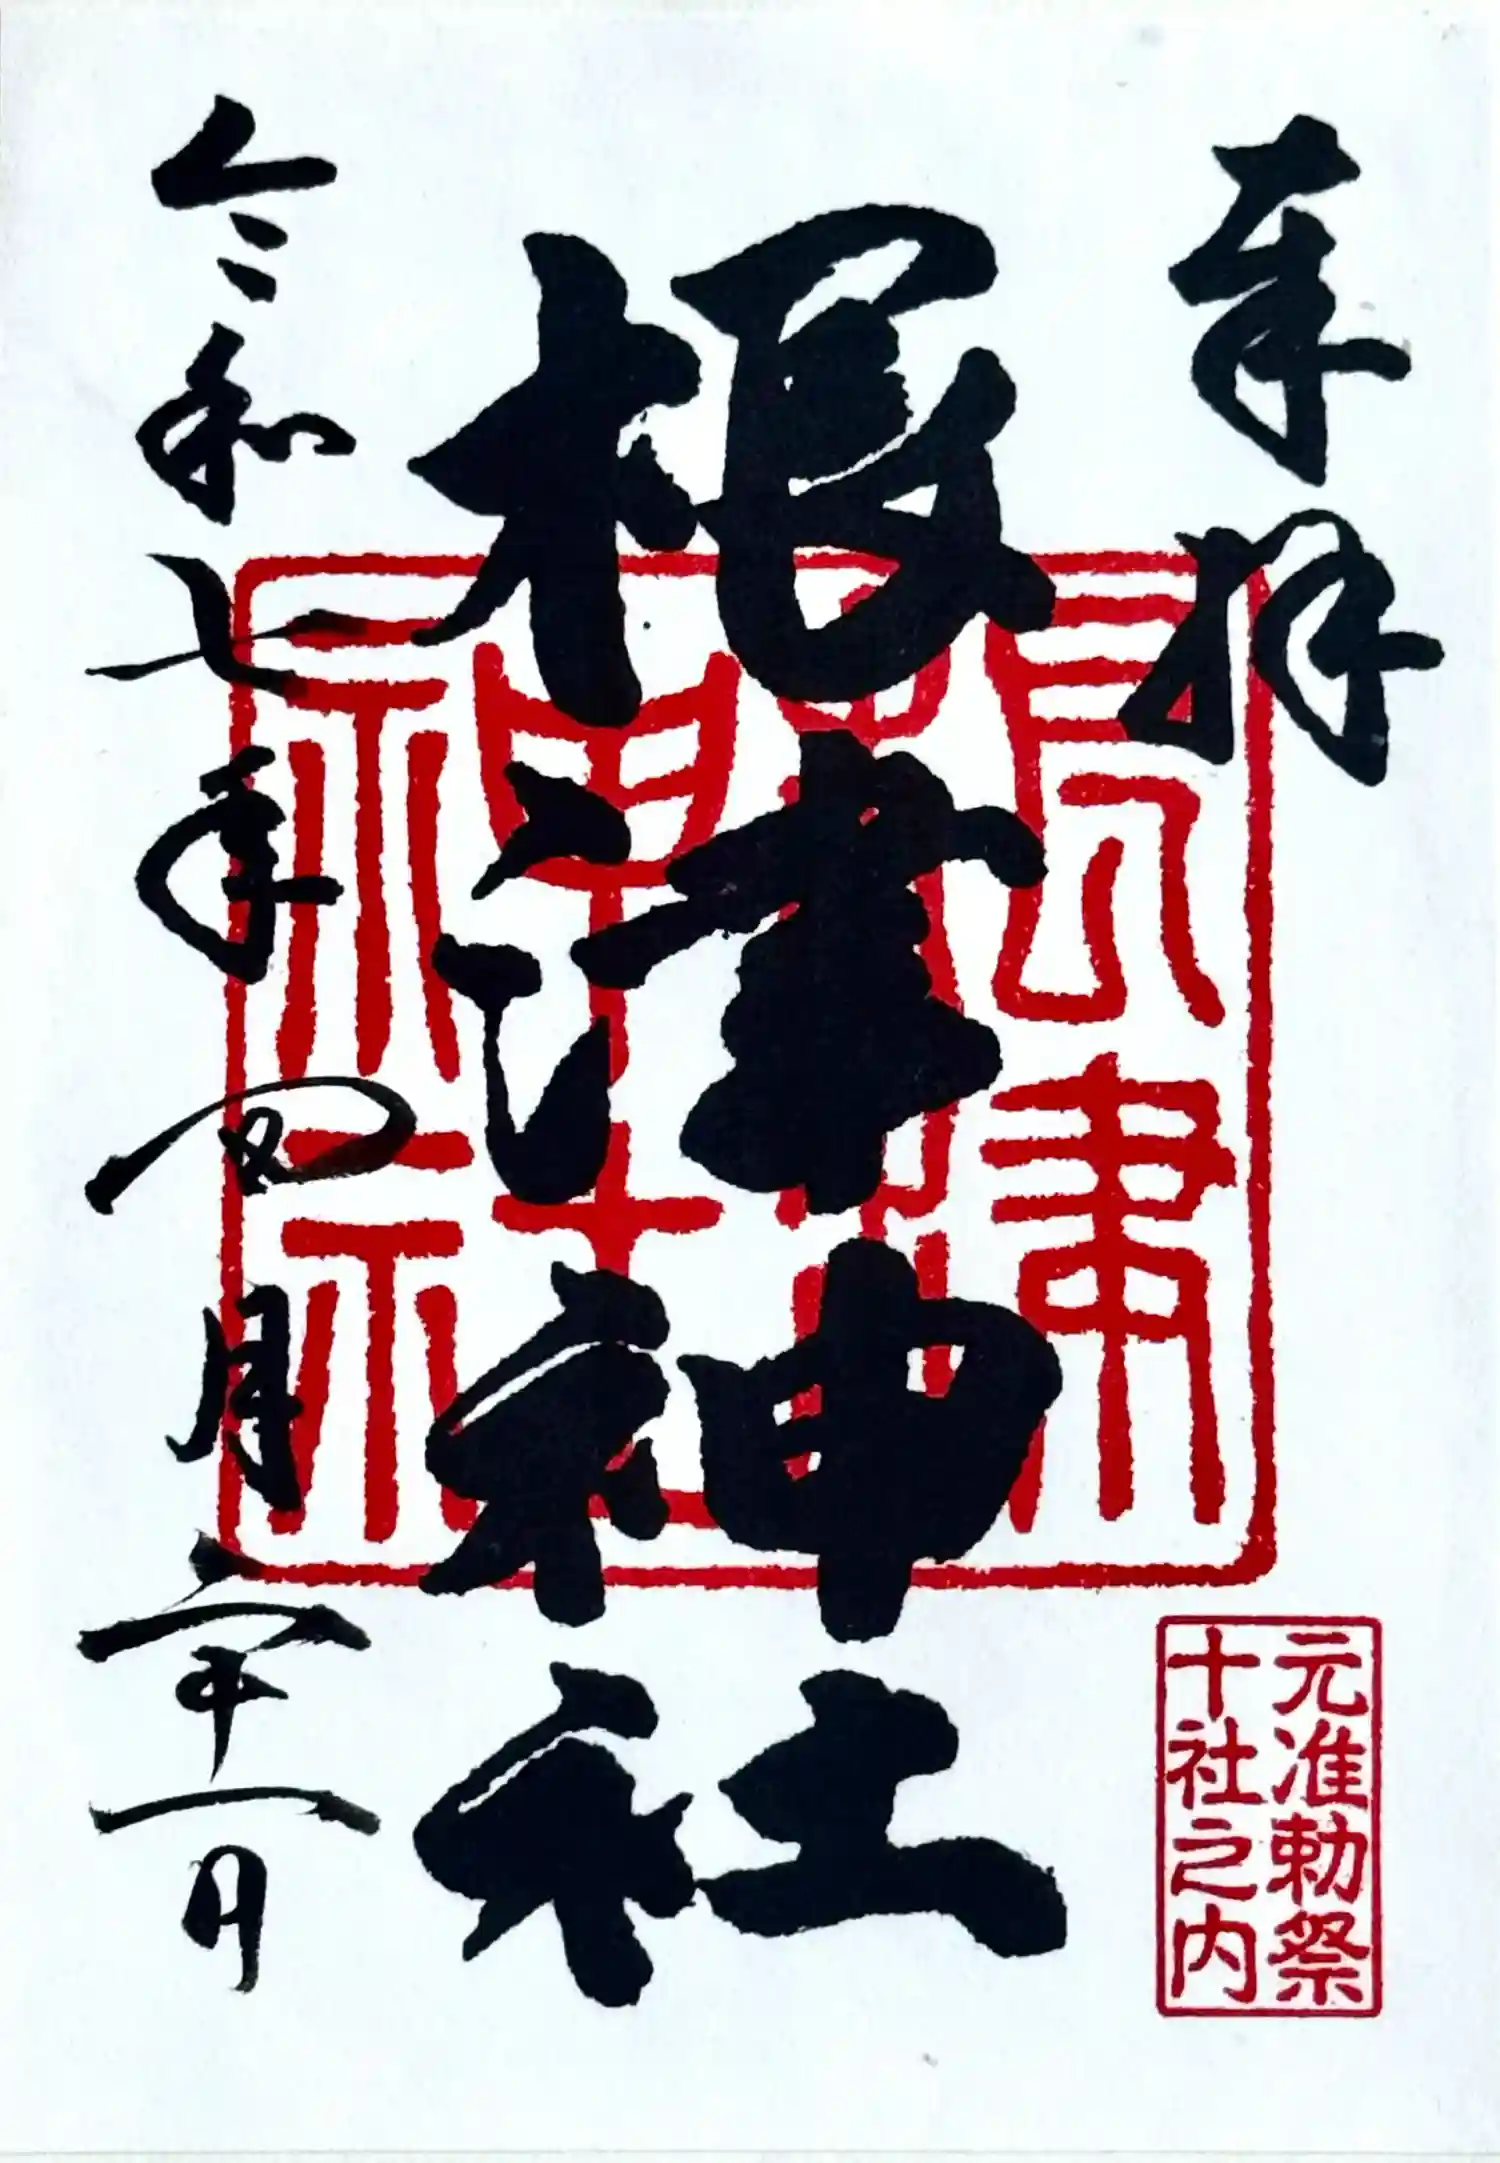 奉拝
元准勅祭
十社之内
根津神社
根津
神社
令和七年四月二十一日